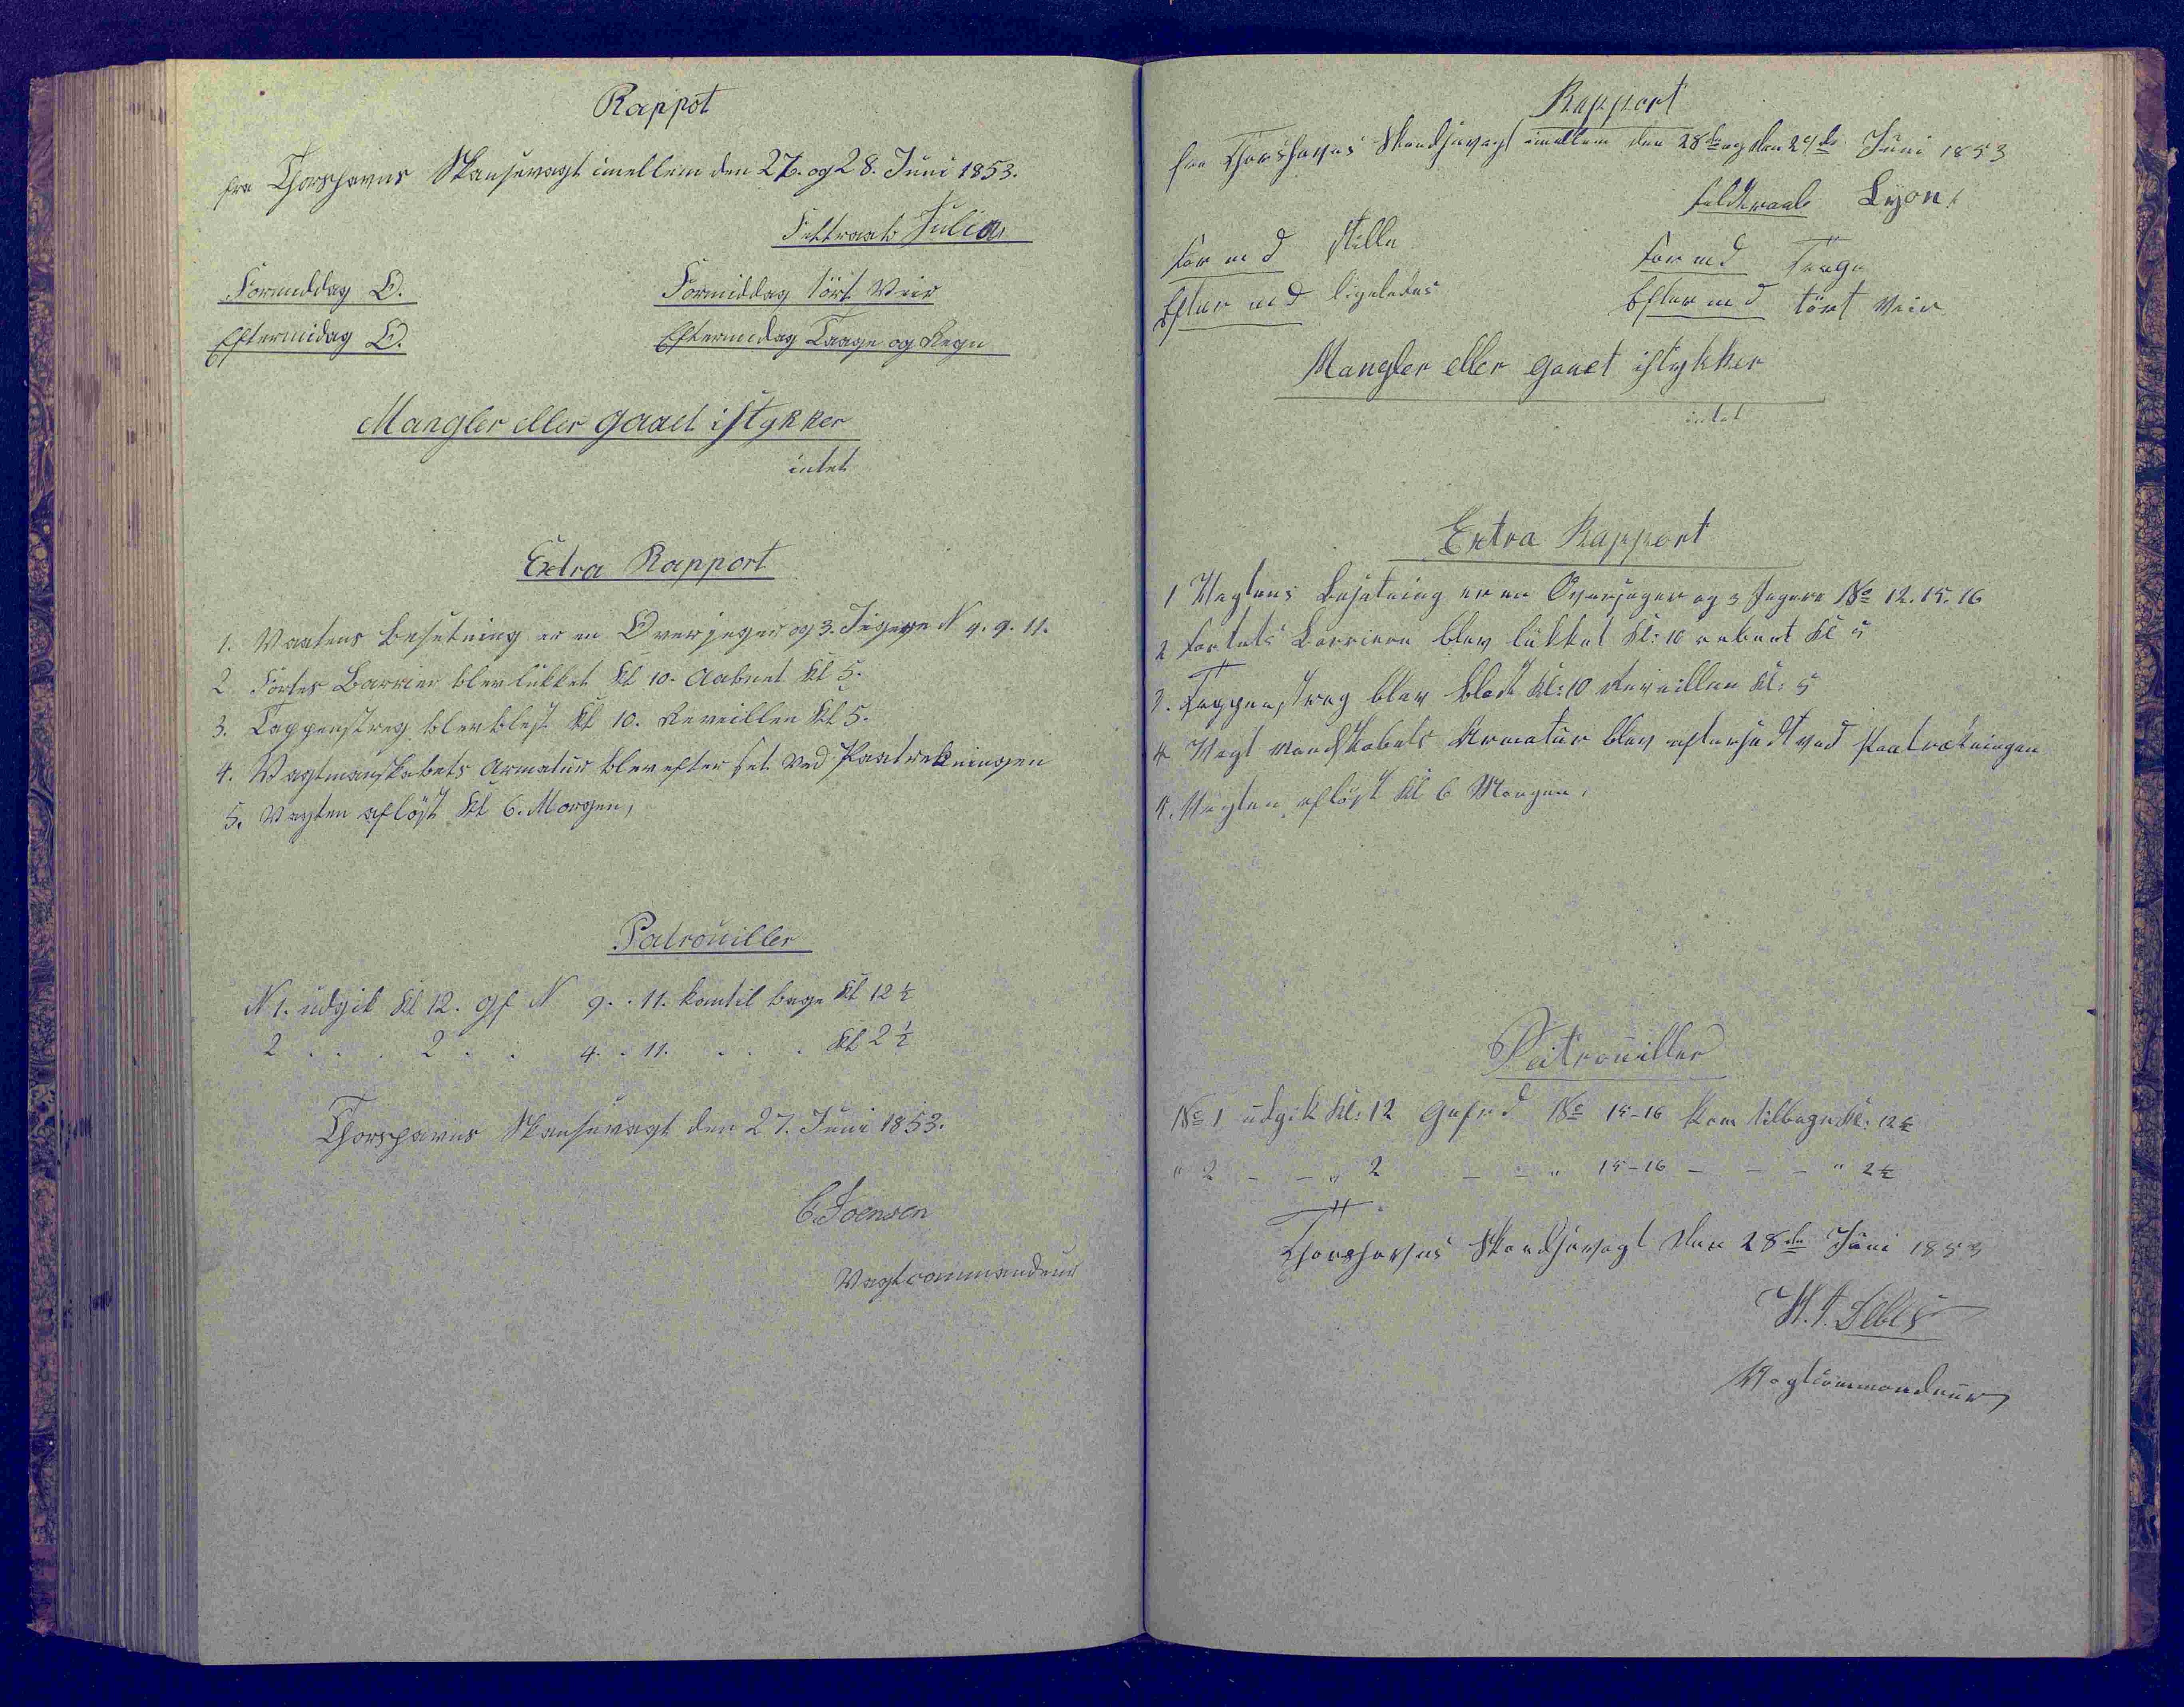 Rappot
fra Thorshavns Skansevagt imellem den 27. og 28. Juni 1853.
Feltraab Julia,
Formiddag O. Formiddag tört Veir
Eftermidag O. Eftermidag Taage og Regn
Mangler eller gaaet istykker
intet
Extra Rapport
1. Vagtens besetning er en Overjeger og 3. Jegere N 4. 9. 11.
2 Fortes Barrier blev lukket Kl 10. Aabnet Kl 5.
3. Tappenstreg blev blest Kl 10. Reveillen Kl 5.
4. Vagtmanskabets Armatur blev efter set ved Paatrekningen
5. Vagten aflöst Kl 6. Morgen,
Patrouiller
N 1. udgik Kl 12. gf N 9. . 11. kom til bage Kl 12 ½
2 . . . 2 . . 4. . 11. . . . Kl 2 ½
Thorshavns Skansevagt den 27. Juni 1853.
C. Joensen
Vagtcommandeur
Rapport
fra Thorshavns Skandsevagt imellem den 28de og den 29de Juni 1853
Feldtraab Lyon,
For md Stille For md Taage
Efter md ligeledes Efter md tört Veir
Mangler eller gaaet istykker
intet
Extra Rapport
1 Vagtens Besætning er en Overjæger og 3 Jægere No 12. 15. 16
2 Fortets Barriere blev lukket Kl: 10 aabnet Kl 5
3. Tappenstreg blev blæst Kl: 10 Reveillen Kl: 5
4 Vagt mandskabets Armatur blev efterseedt ved Paatrækningen
5. Vagten aflöst Kl 6 Morgen,
Patrouiller
No 1 udgik Kl: 12 Gefrd No 15-16 kom tilbage Kl: 12½
" 2 - - " 2 - - " 15-16 - - - " 2½
Thorshavns Skandsevagt den 28de Juni 1853
Vagtcommandeur